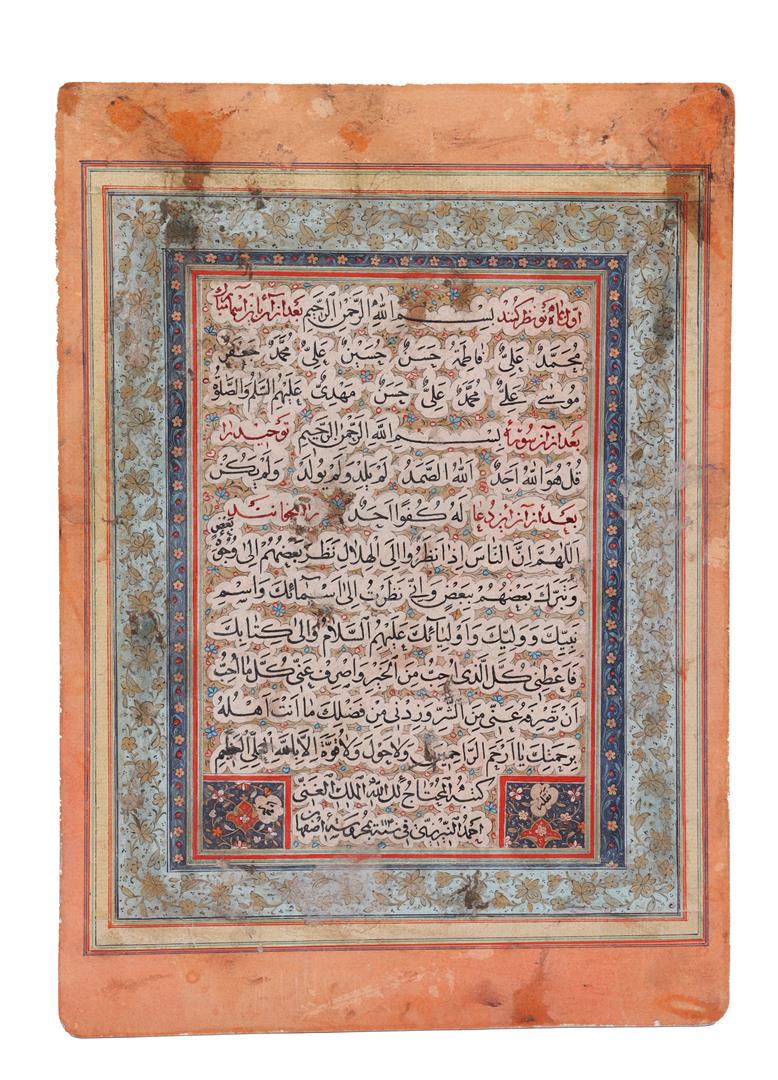 اول بماه نو نظر کنند بسم الله الرحمن الرحیم بعد از آن این اسماء
محمدٌ علیٌ فاطمة حسنٌ حسینٌ علیٌ محمدٌ جعفرٌ
موسی علیٌ محمدٌ علیٌ حسنٌ مهدی علیهم السلم والصلوة
بعد از آن سورهٔ بسم الله الرحمن الرحیم توحید را
قل هو الله احدٌ الله الصمد لم یلد ولم یولد ولم یکن
بعد از آن این دعا له کفوًا احد را بخوانند
اللهم ان الناس اذا نظروا الی الهلال نظر بعضهم الی وجوه بعض
وتبرك بعضهم ببعض وانی نظرت الی اسمائك واسم
نبیك وولیك واولیائك علیهم السلام والی کتابك
فاعطنی کل الذی احب من الخیر واصرف عنی کل ما احب
ان تصرفه عنی من الشر وزدنی من فضلك ما انت اهله
برحمتك یا ارحم الراحمین ولا حول ولا قوة الا بالله العلی العظیم
کتبه المحتاج الی الله الملك الغنی
احمد النیریزی فی سنة اصفهان